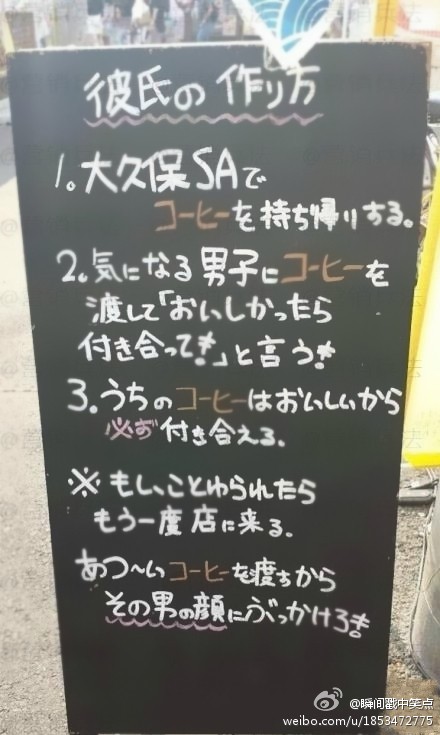 彼氏の作り方
1。大久保SAで
コーヒーを持ち帰りする。
2。気になる男子にコーヒーを
渡して「おいしかったら
付き合って!」と言う!
3.うちのコーヒーはおいしいから
必ず付き合える。
※もし、ことわられたら
もう一度店に来る。
あつ〜いコーヒーを渡すから
その男の顔にぶっかけろ!
@瞬间戳中笑点
weibo.com/u/1853472775